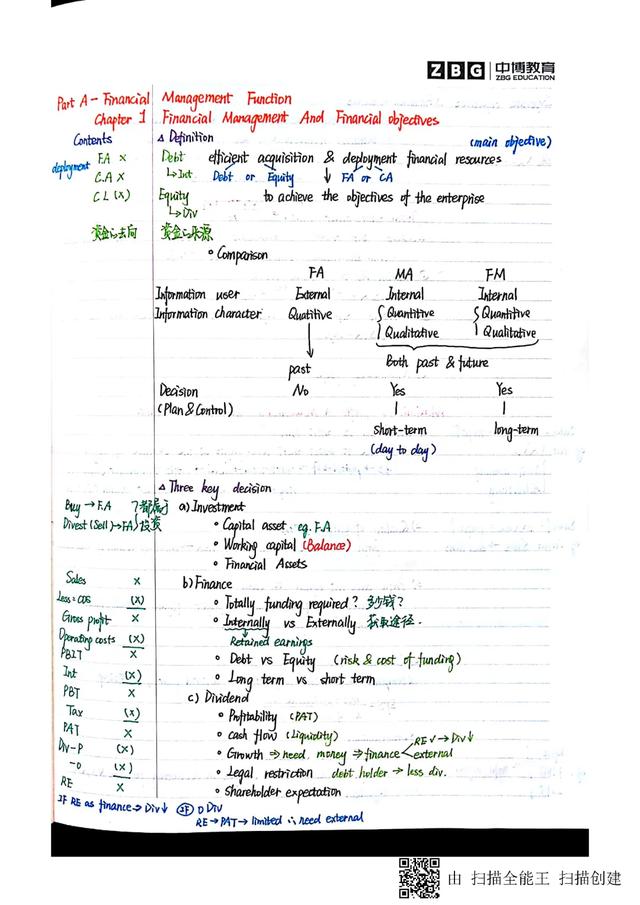 ZBG 中博教育
ZBG EDUCATION
Part A - Financial Management Function
Chapter 1 Financial Management And Financial objectives
Contents
△ Definition (main objective)
deployment
F.A X
C.A X
C L (X)
资金的去向
Debt efficient acquisition & deployment financial resources
↳ Int Debt or Equity ↓ FA or CA
Equity to achieve the objectives of the enterprise
↳ Div
资金的来源
• Comparison
FA MA FM
Information user External Internal Internal
Information character Quatitive { Quantitive { Quantitive
Qualitative Qualitative
past Both past & future
Decision No Yes Yes
(Plan & Control)
short-term long-term
(day to day)
△ Three key decision
Buy → F.A
Divest (Sell) → FA
都属于
投资
a) Investment
• Capital asset. eg. F.A
• Working capital (Balance)
• Financial Assets
Sales X
Less: COS (X)
Gross profit X
Operating costs (X)
PBIT X
Int (X)
PBT X
Tax (X)
PAT X
Div-P (X)
-O (X)
RE X
b) Finance
• Totally funding required? 多少钱?
• Internally vs Externally 获取途径.
Retained earnings
• Debt vs Equity (risk & cost of funding)
• Long term vs short term
c) Dividend
• Profitability (PAT)
• Cash flow (Liquidity)
• Growth → need money → finance < RE ✓ → Div ↓
external
• Legal restriction debt holder → less div.
• Shareholder expectation
IF RE as finance → Div ↓ IF 0 Div
RE → PAT → limited ∴ need external
由 扫描全能王 扫描创建